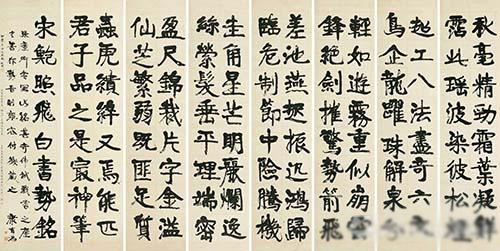 秋毫精勁霜葉凝
霑此瑤波染彼松
超工八法盡奇六
鳥企龍躍珠解泉
輕如遊霧重似崩
鋒絕劍摧驚勢箭飛
差池燕起振迅鴻歸
臨危制節中險騰機
圭角星芒明麗爛逸
絲縈髮垂平理端密
盈尺錦裁片字金溢
仙芝繁弱既匪足質
蟲虎續綷又焉能匹
君子品之是最神筆
宋鮑照飛白書勢銘
康有為